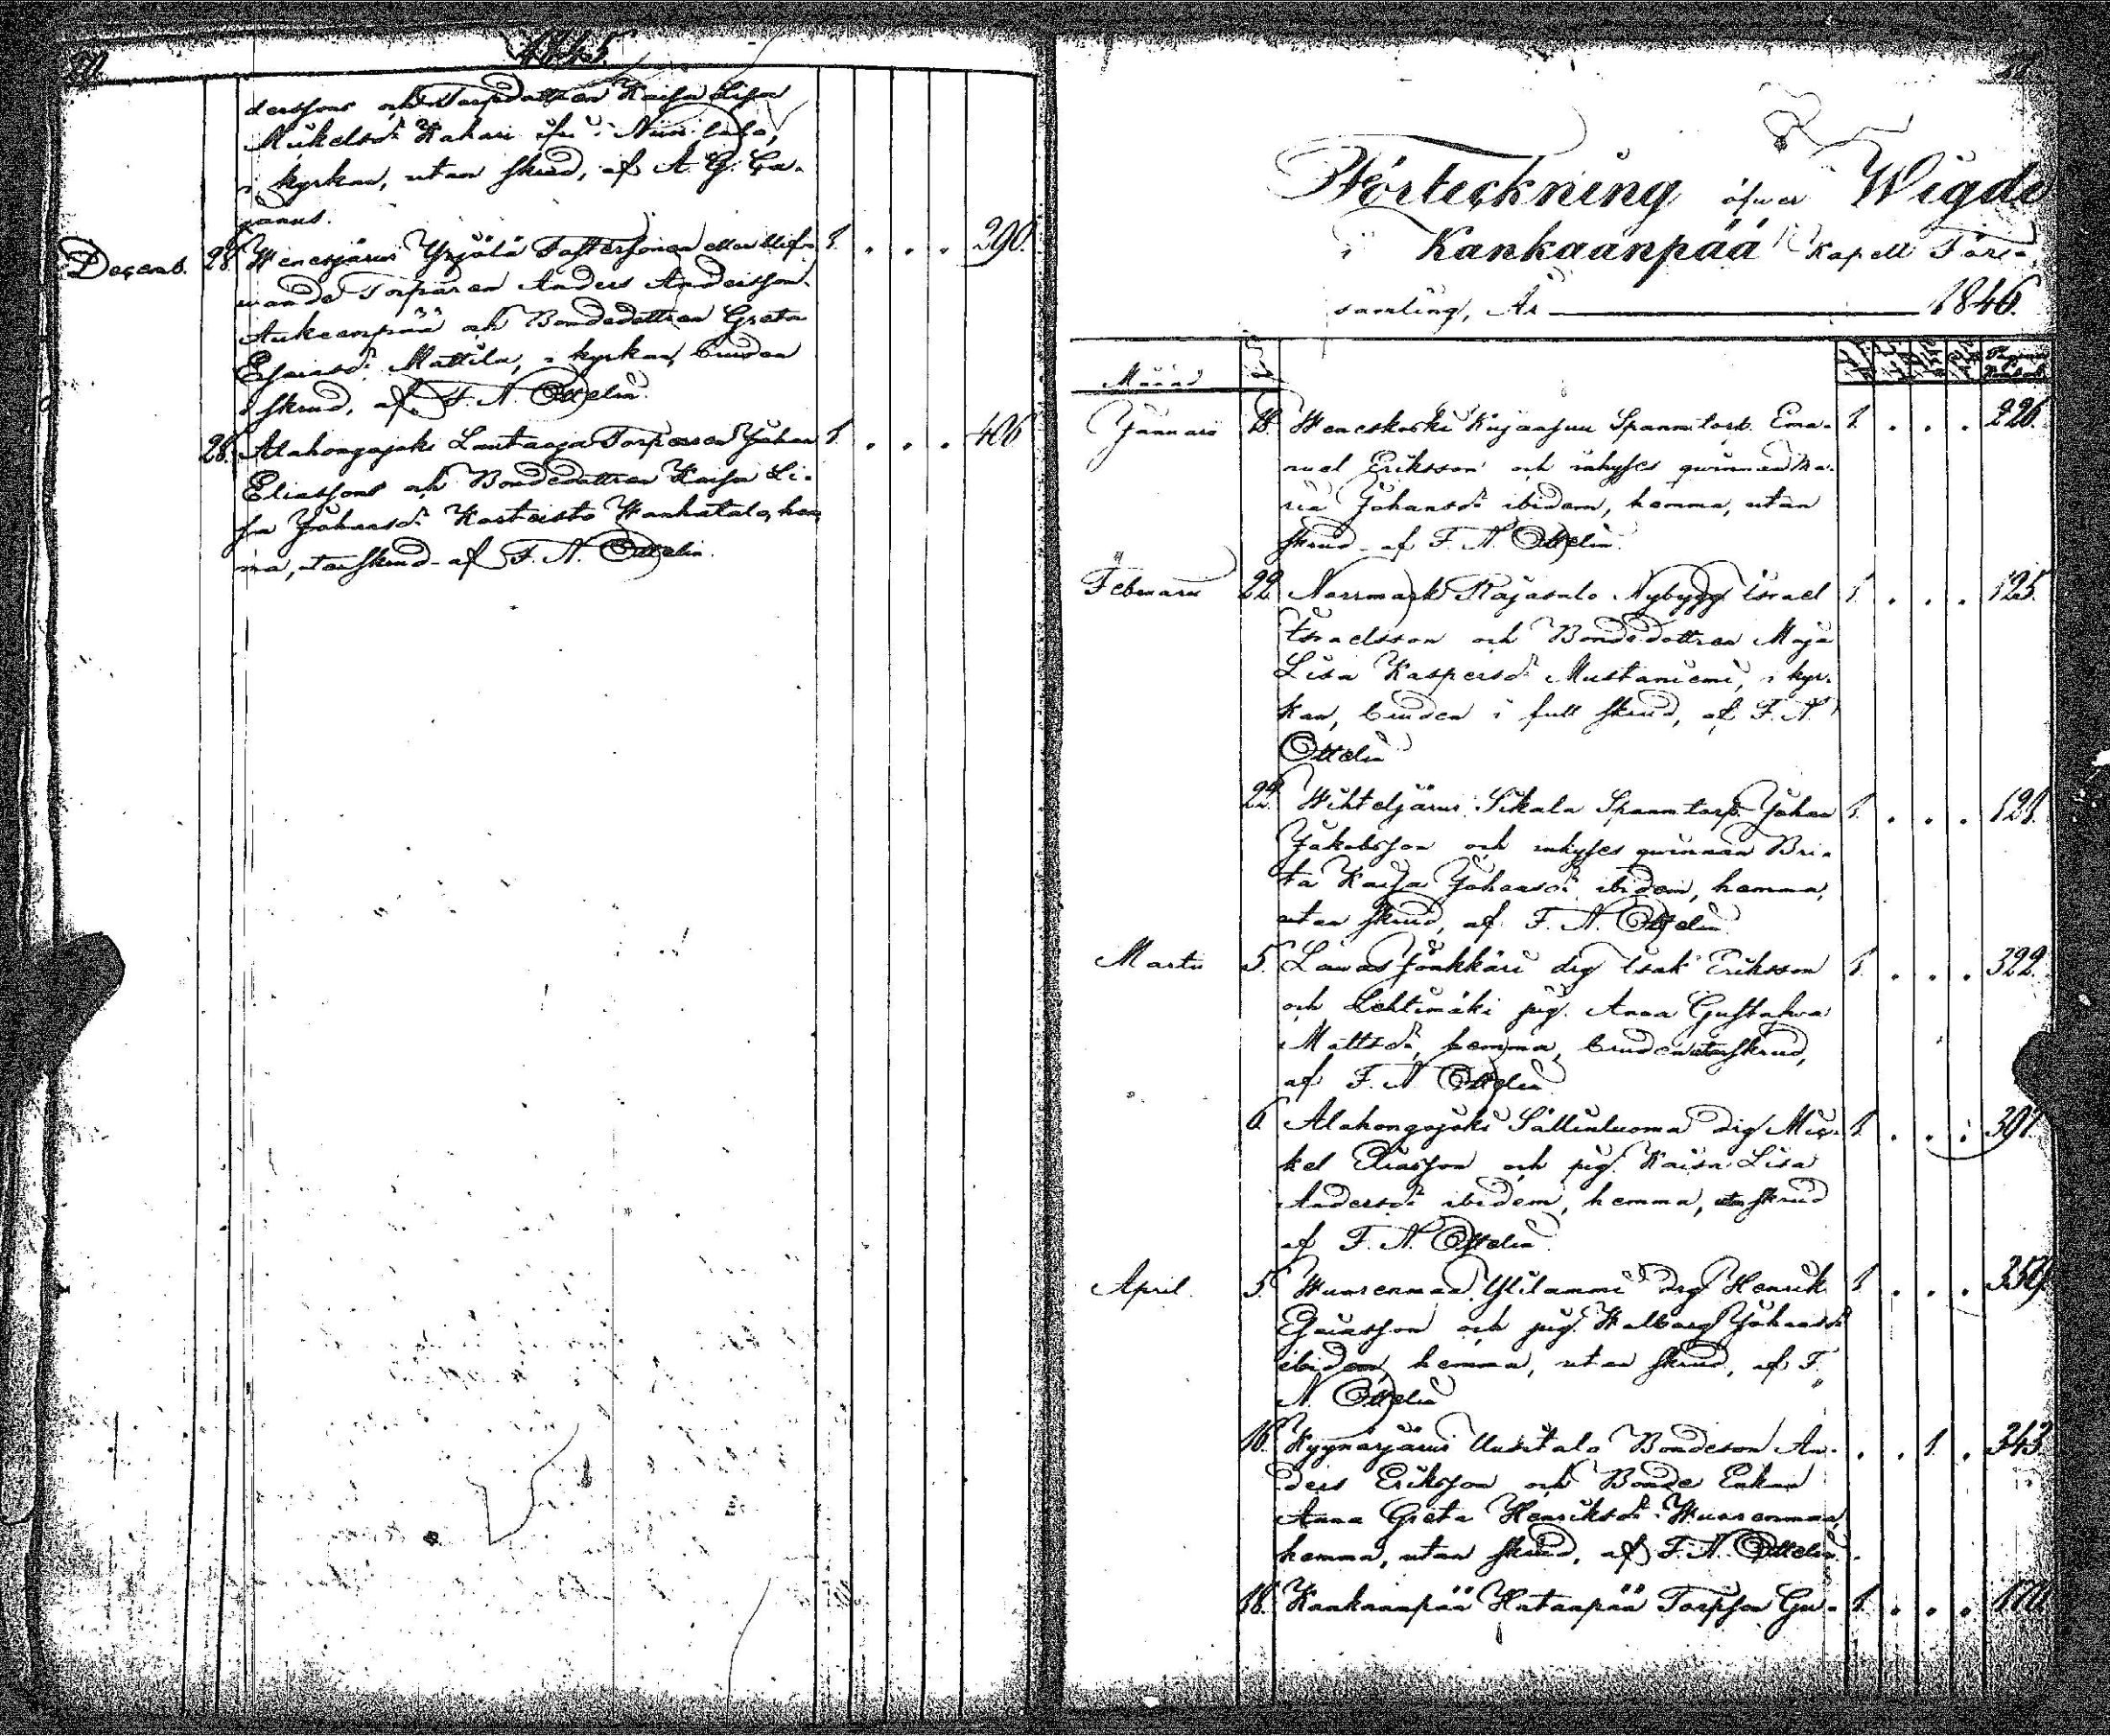 1845.
derssons och Torpdottren Kaisa Lisa
Mickelsd:r Kahari ifrån Niinisalo,
i kyrkan, utan skrud, af A. G. Ca-
janus.
Decemb. 28. Wenesjärvi Yrjölä Fostersonen eller blif- 1. . . . 290.
wande Torparen Anders Andersson
Aukeenpää och Bondedottren Greta
Esaiasd:r Mattila, i kyrkan, bruden
i skrud, af F. N. Ottelin.
28. Alahongajoki Lautaoja Torparen Johan 1. . . . 406
Eliassons och Bondedottren Kaisa Li-
sa Johansd:r Karteisto Wanhatalo, hem-
ma, utan skrud af F. N. Ottelin.
Förteckning öfwer Wigde
i Kankaanpää Kapell Förs-
samling, År 1846.
Månad
Januarii 18. Weneskoski Kujansuu Spanmtorp. Ema- 1. . . . 226.
nuel Eriksson och inhyses qwinnan Ma-
ria Johansd:r ibidem, hemma, utan
skrud af F. N. Ottelin.
Februarii 22. Norrmark Rajasalo Nybygg. Israel 1. . . . 125.
Israelsson och Bondedottren Maja
Lisa Kaspersd:r Mustaniemi, i kyr-
kan, bruden i full skrud, af F. N.
Ottelin
22. Wihteljärvi Sikala Spanmtorp. Johan 1. . . . 121.
Jakobsson och inhyses qwinnan Bri-
ta Kaisa Johansd:r ibidem, hemma,
utan skrud, af F. N. Ottelin.
Martii 5. Lawas Jonkkäri drg Isak Eriksson 1. . . . 322.
och Lehtimäki pig. Anna Gustafwa
Mattsd:r, hemma, bruden utan skrud,
af F. N. Ottelin
6. Alahongajoki Sällinluoma drg Mic- 1. . . . 391.
kel Eliasson och pig. Kaisa Lisa
Andersd:r ibidem, hemma, utan skrud
af F. N. Ottelin.
April. 5. Wuorenmaa Ylilammi drg Henrik 1. . . . 359.
Esaiasson och pig. Walborg Johansd:r
ibidem, hemma, utan skrud, af F.
N. Ottelin
16. Kyynärjärvi Uusitalo Bondeson An- . . 1 . 343.
ders Eriksson och Bonde Enkan
Anna Greta Henriksd:r Wuorenmaa,
hemma, utan skrud, af F. N. Ottelin.
18. Kankaanpää Hatanpää Torpson Gu- 1. . . .